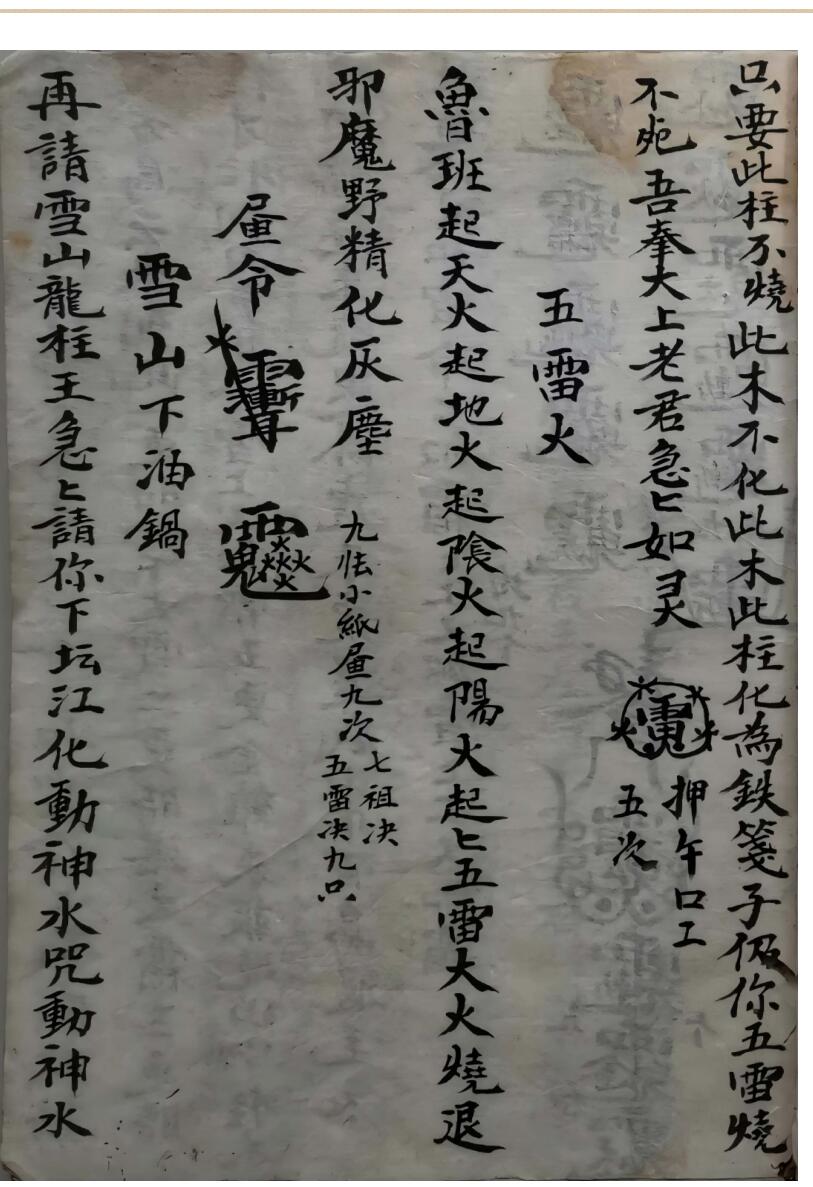 只要此柱不燒此木不化此木此柱化為鉄笺子伋你五雷燒
不死吾奉大上老君急匕如灵
押午口工
五次
五雷火
魯班起天火起地火起陰火起陽火起匕五雷大火燒退
邪魔野精化灰塵
九怅小紙昼九次
七祖决
五雷决九只
昼令
雪山下油鍋
再請雪山龍柱王急匕請你下坛江化動神水咒動神水